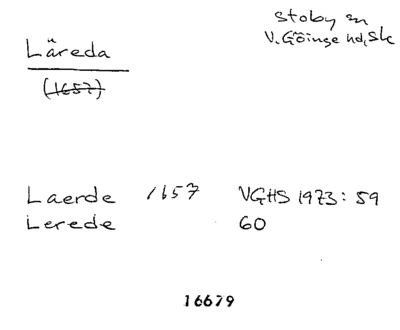 Stoby sn
V. Göinge hd, Sk
Läreda
(1657)
Laerde 1657 VGHS 1973: 59
Lerede 60
16679